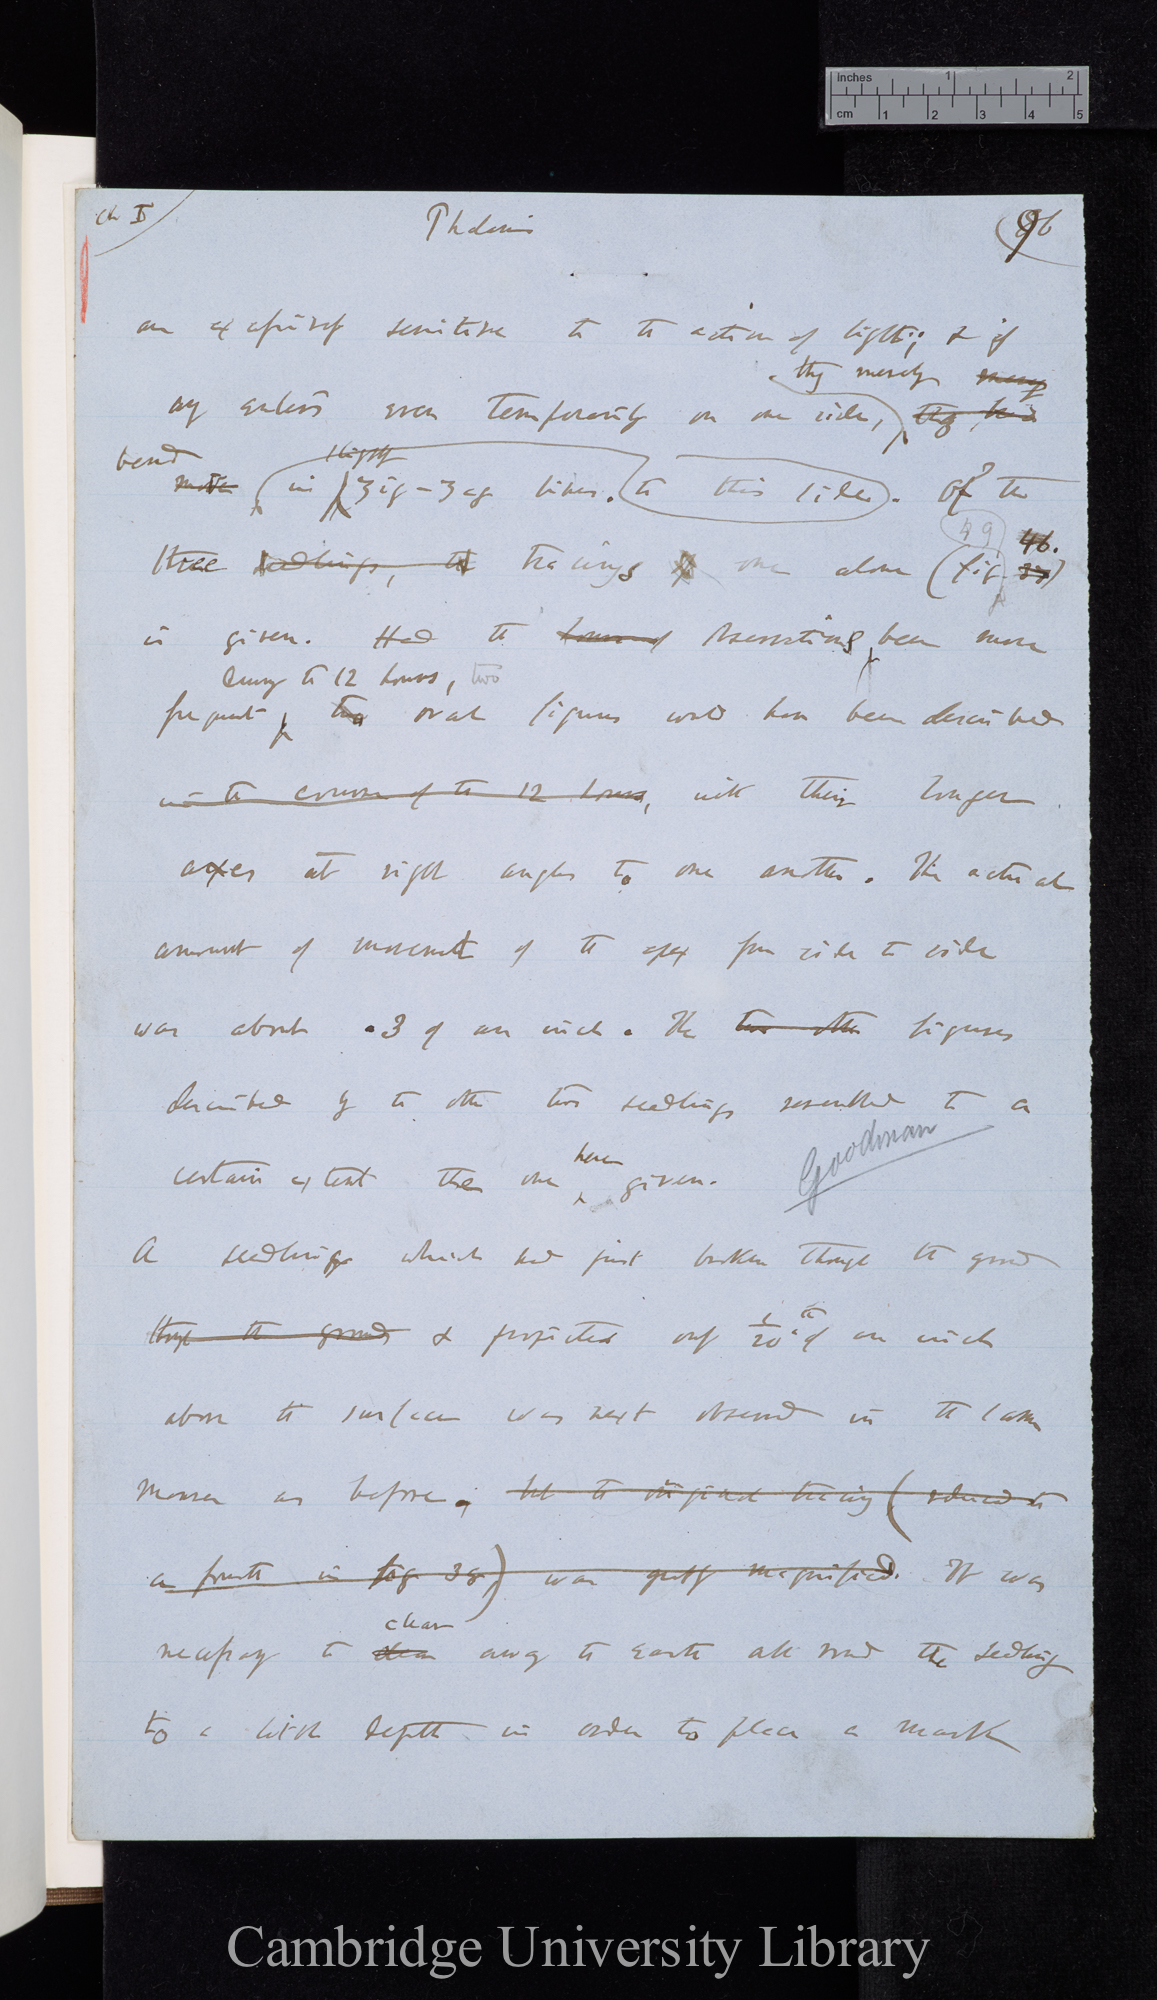 Inches 1 2
cm 1 2 3 4 5
Ch I
Phalaris
96
are excessively sensitive to the action of light; & if
they merely
any enters even temporarily on one side, they
bend
slightly
in zig-zag lines. to this side. Of the
49
46.
three seedlings, tracings one alone (fig 38)
is given. Had the observations been more
during the 12 hours, two
frequent, two oval figures would have been described
in the course of the 12 hours, with their longer
axes at right angles to one another. The actual
amount of movement of the apex from side to side
was about .3 of an inch. The two other figures
described by the other two seedlings resembled to a
Goodman
here
certain extent the one given.
A seedling which had just broken through the ground
through the ground & projected only 1/20th of an inch
above the surface was next observed in the same
manner as before, but the original tracing (reduced to
a fourth in fig 38) was greatly magnified. It was
clear
necessary to clear away the earth all round the seedling
to a little depth in order to place a mark
Cambridge University Library